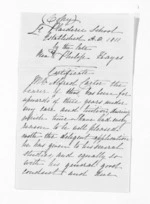 (Copy)
School
Established A.D. 1811
by the late
Certificate
Mr Alfred Carter the
bearer of this has been for
upwards of three years under
my care and tuition, during
which time I have had every
reason to be well pleased
with the diligent application
he has given to his several
studies, and equally so
with his general good
conduct and